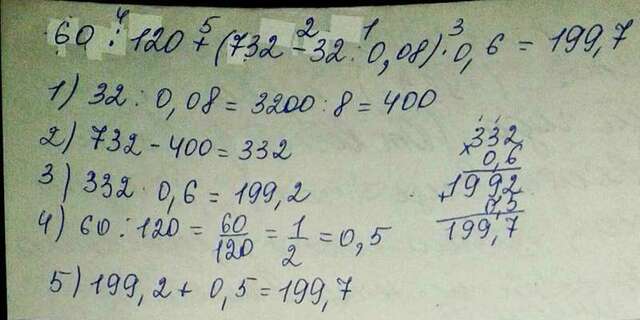 4 5 2 1 3
60 : 120 + (732 - 32 : 0,08) · 0,6 = 199,7
1) 32 : 0,08 = 3200 : 8 = 400
2) 732 - 400 = 332
3) 332 · 0,6 = 199,2
4) 60 : 120 = 60/120 = 1/2 = 0,5
5) 199,2 + 0,5 = 199,7
332
× 0,6
1992
+ 0,5
199,7